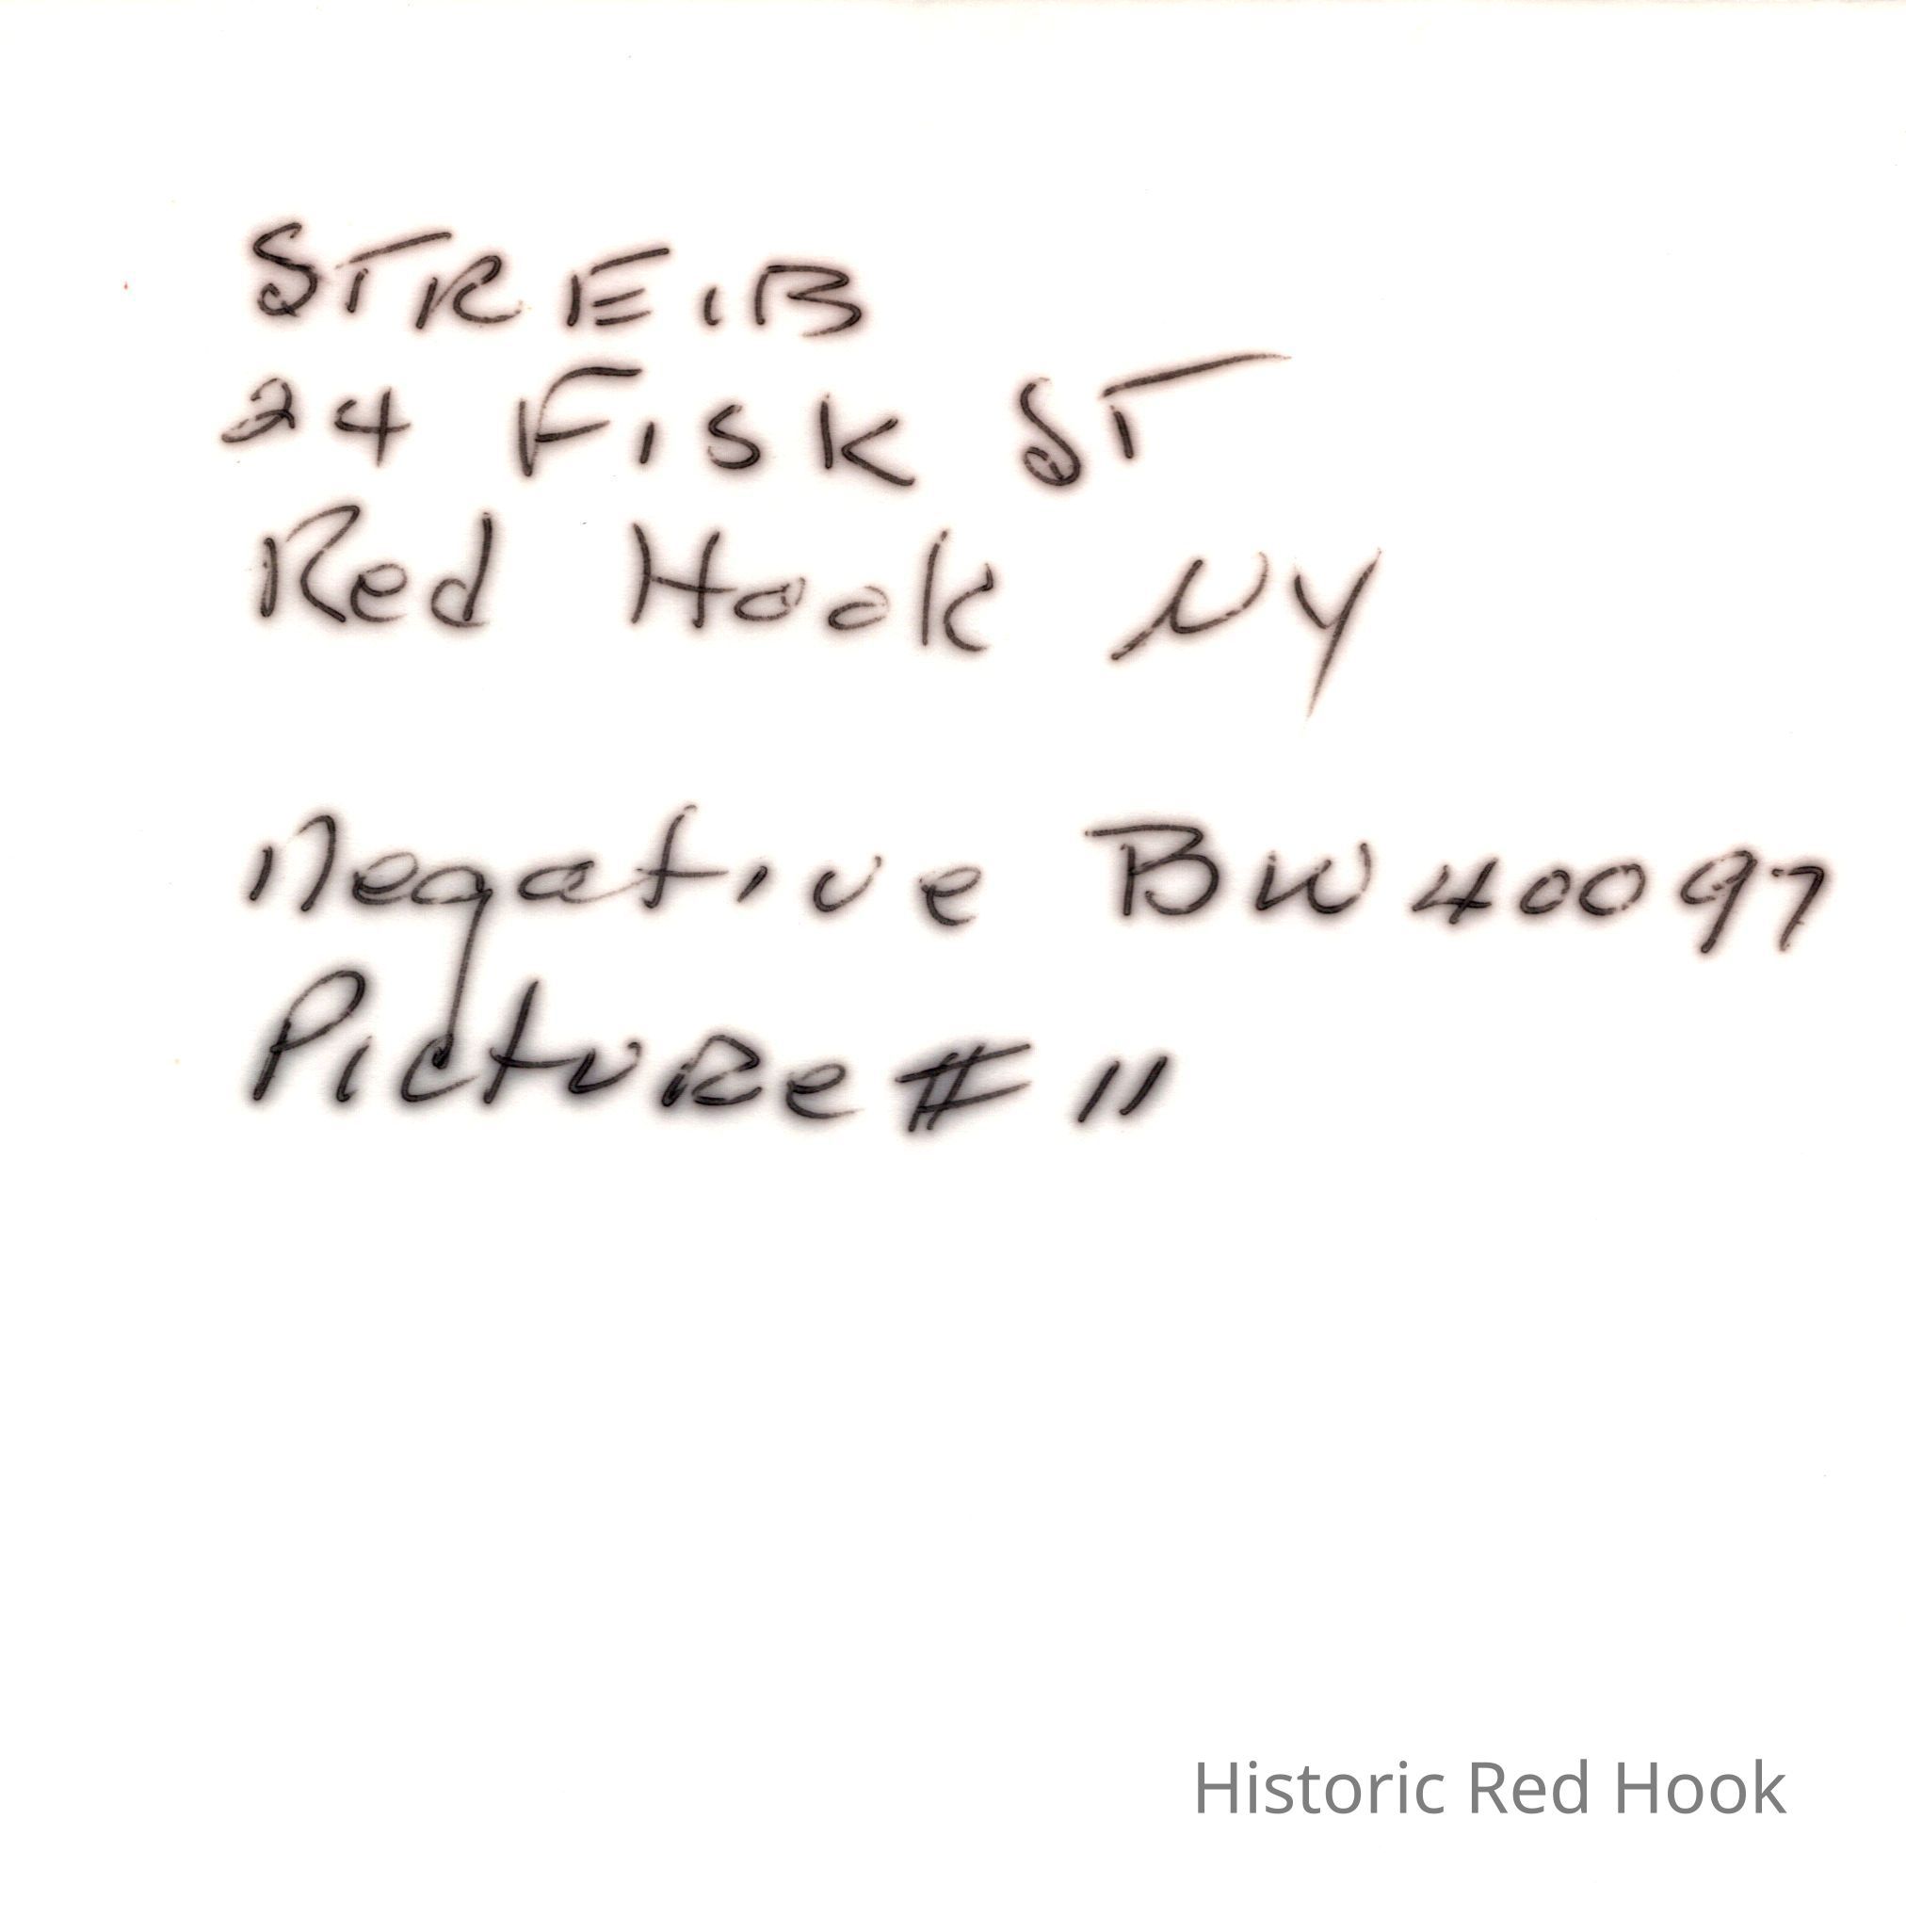 STREIB
24 FISK ST
Red Hook NY
Negative BW 40097
PictuRe # 11
Historic Red Hook